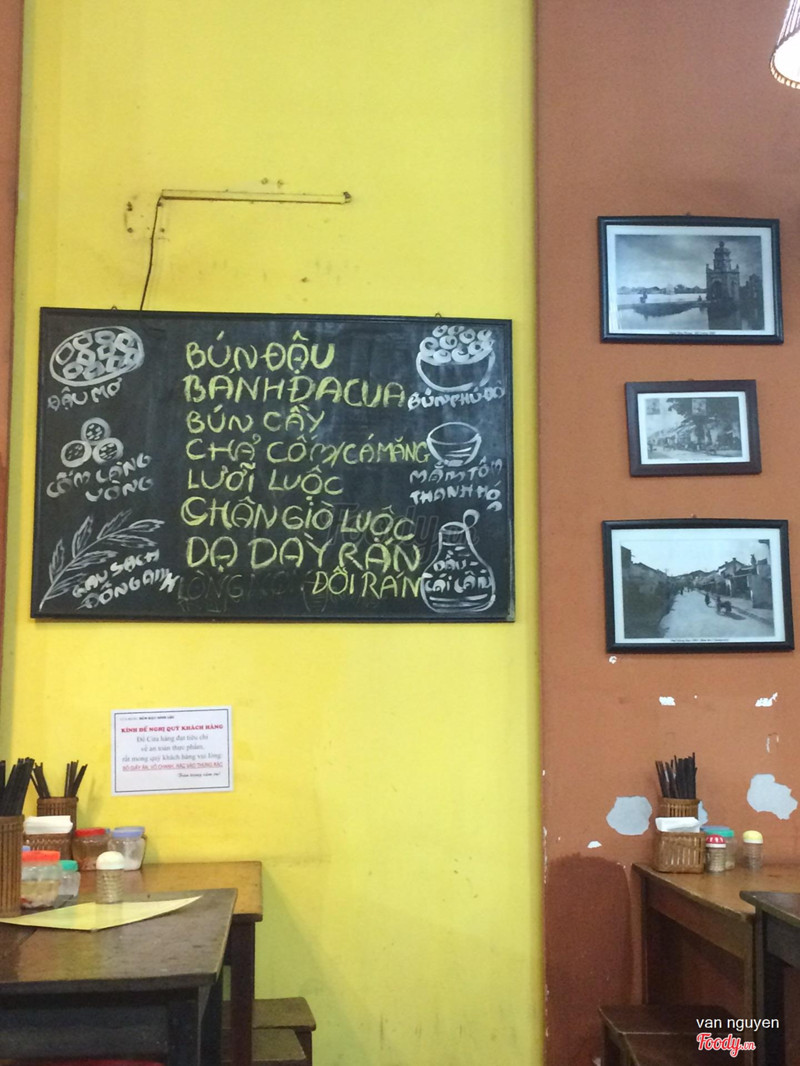 BÚN ĐẬU
BÁNH ĐA CUA
BÚN CẦY
CHẢ CỐM/CÁ MĂNG
LƯỠI LUỘC
CHÂN GIÒ LUỘC
DẠ DÀY RÁN
DỒI RÁN
ĐẬU MƠ
CỐM LÀNG
VÒNG
RAU SẠCH
ĐÔNG ANH
BÚN PHÚ ĐÔ
MẮM TÔM
THANH HÓA
DẦU
CÁI LÂN
KÍNH ĐỀ NGHỊ QUÝ KHÁCH HÀNG
Để Cửa hàng đạt tiêu chí
vệ an toàn thực phẩm,
rất mong quý khách hàng vui lòng:
BỎ GIẤY ĂN, VỎ CHANH, RÁC VÀO THÙNG RÁC
"Trân trọng cảm ơn"
Foody.vn
van nguyen
Foody.vn